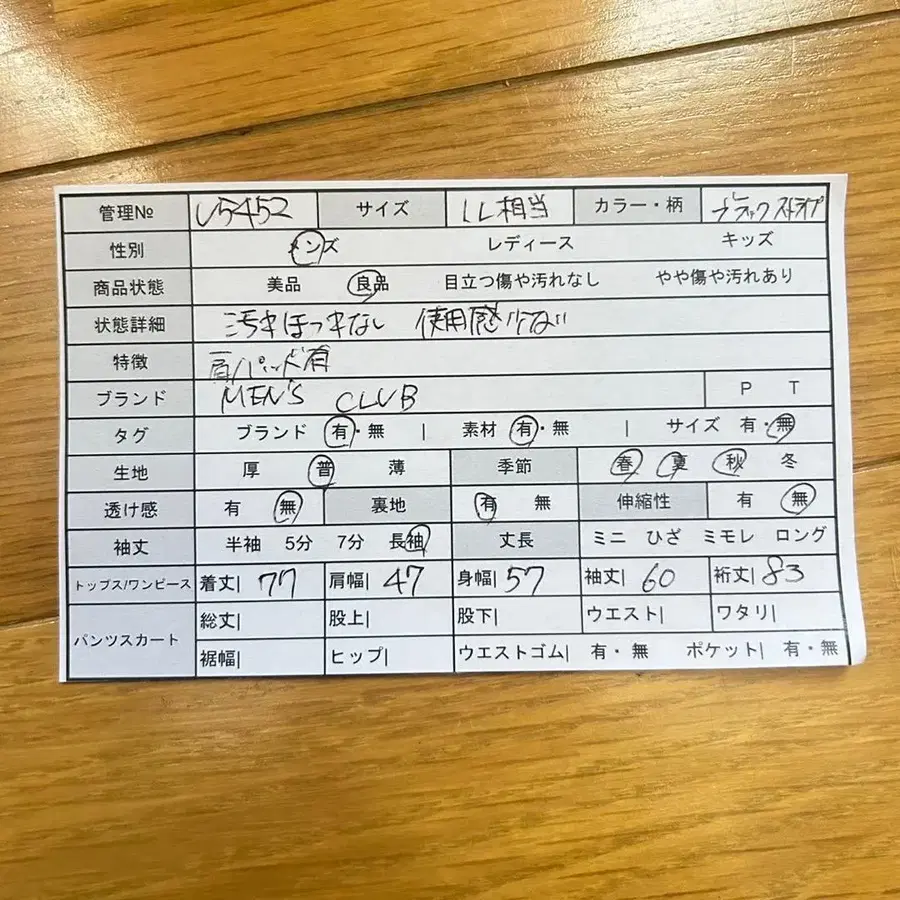 管理№ U5452 サイズ LL相当 カラー・柄 ブラックストライプ
性別 メンズ レディース キッズ
商品状態 美品 良品 目立つ傷や汚れなし やや傷や汚れあり
状態詳細 汚れほつれなし 使用感少ない
特徴 肩パッド有
ブランド MEN'S CLUB P T
タグ ブランド 有・無 | 素材 有・無 | サイズ 有・無
生地 厚 普 薄 季節 春 夏 秋 冬
透け感 有 無 裏地 有 無 伸縮性 有 無
袖丈 半袖 5分 7分 長袖 丈長 ミニ ひざ ミモレ ロング
トップス/ワンピース 着丈| 77 肩幅| 47 身幅| 57 袖丈| 60 裄丈| 83
パンツスカート 総丈| 股上| 股下| ウエスト| ワタリ|
裾幅| ヒップ| ウエストゴム| 有・無 ポケット| 有・無